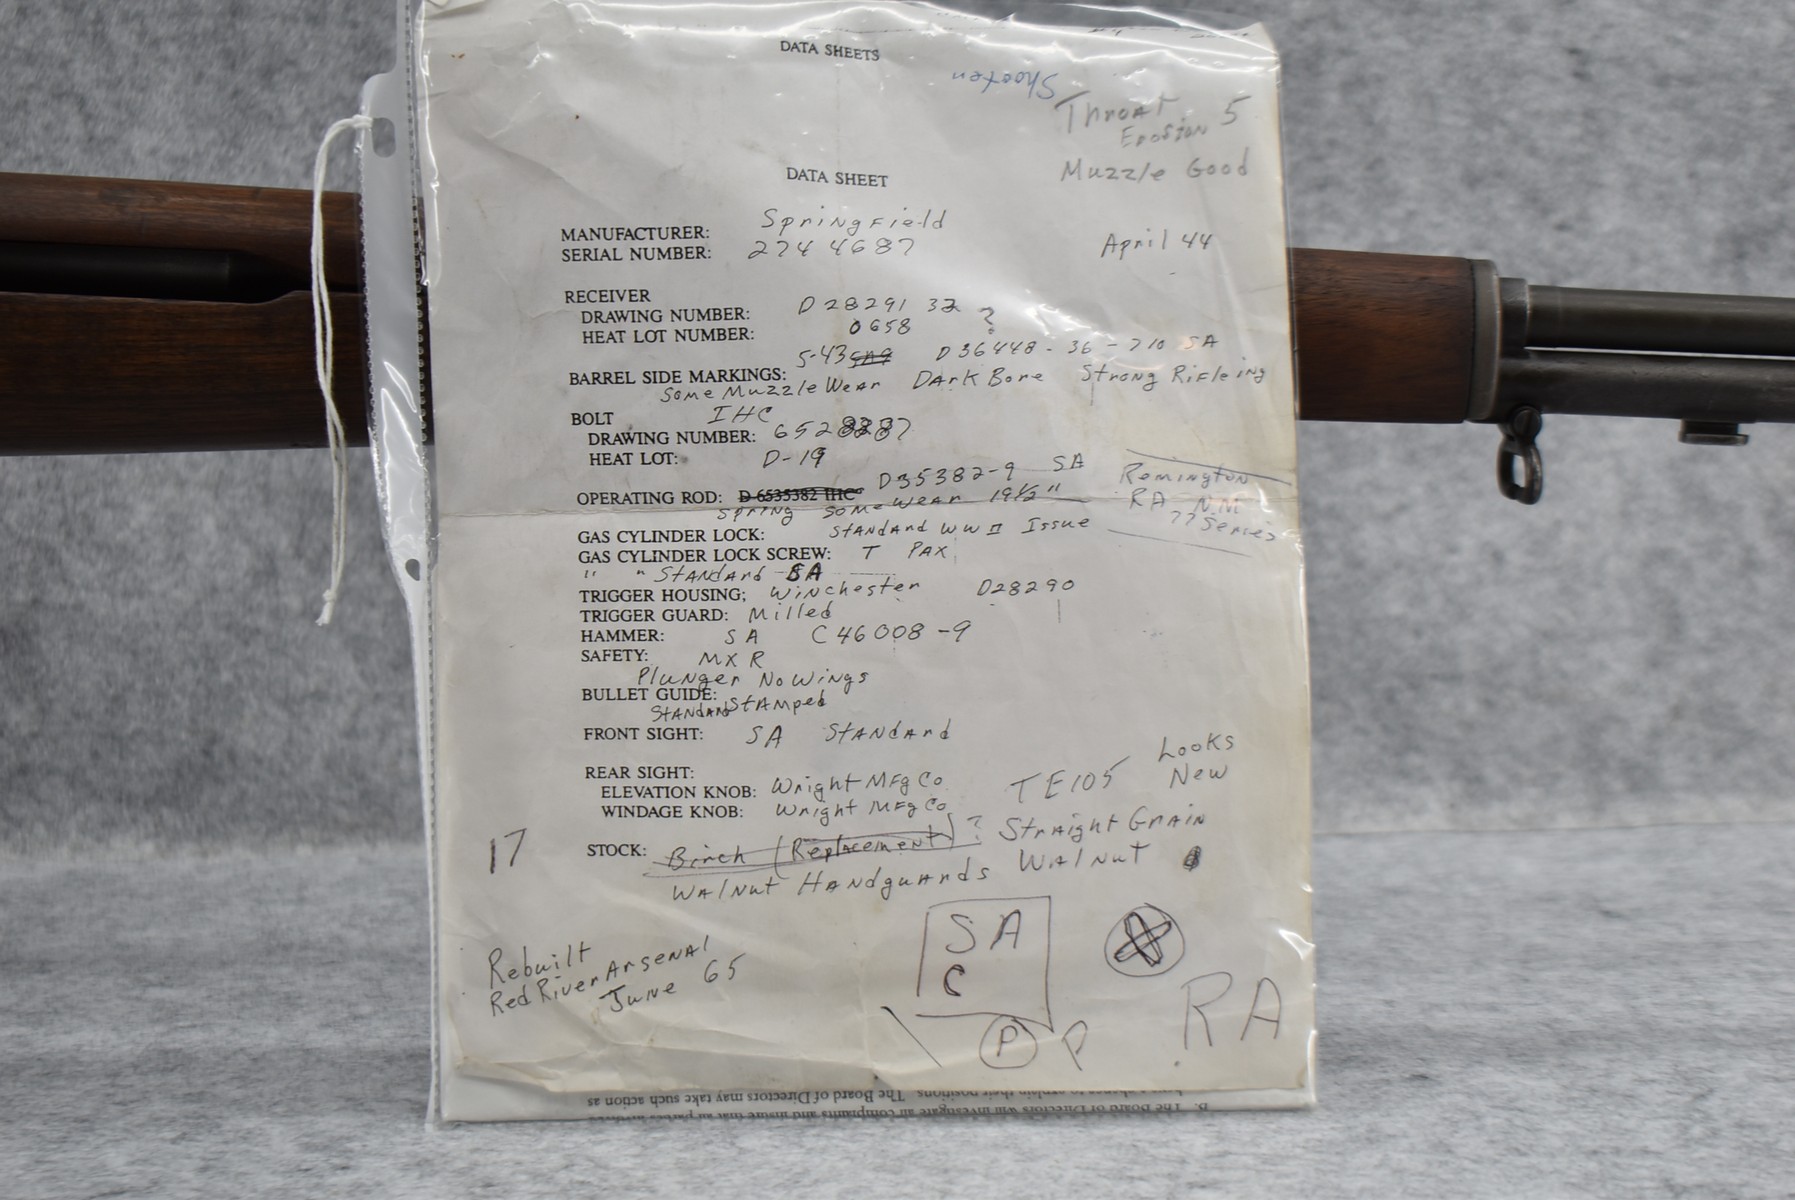 DATA SHEETS
Shooten
Throat 5
Erosion
Muzzle Good
DATA SHEET
MANUFACTURER: Springfield
SERIAL NUMBER: 2744687 April 44
RECEIVER
DRAWING NUMBER: D 28291 32 ?
HEAT LOT NUMBER: 0658
5-43 D36448-36-710 SA
BARREL SIDE MARKINGS:
Some Muzzle Wear Dark Bore Strong Rifleing
BOLT IHC
DRAWING NUMBER: 6528287
HEAT LOT: D-19
D35382-9 SA
OPERATING ROD: D 6535382 IHC
Spring some wear 19½"
Remington
RA NM
?? Series
GAS CYLINDER LOCK: Standard WW II Issue
GAS CYLINDER LOCK SCREW: T PAX
" " Standard SA
TRIGGER HOUSING; Winchester D28290
TRIGGER GUARD: Milled
HAMMER: SA C46008-9
SAFETY: MXR
Plunger No Wings
BULLET GUIDE:
Standard Stamped
FRONT SIGHT: SA Standard
REAR SIGHT:
ELEVATION KNOB: Wright Mfg Co. TE105 Looks New
WINDAGE KNOB: Wright Mfg Co
17
STOCK: Birch (Replacement) ? Straight Grain
Walnut Handguards Walnut
Rebuilt
Red River Arsenal
June 65
SA
C
P P
RA
explain their positions. The Board of Directors may take such action as
B. The Board of Directors will investigate all complaints and insure that all parties